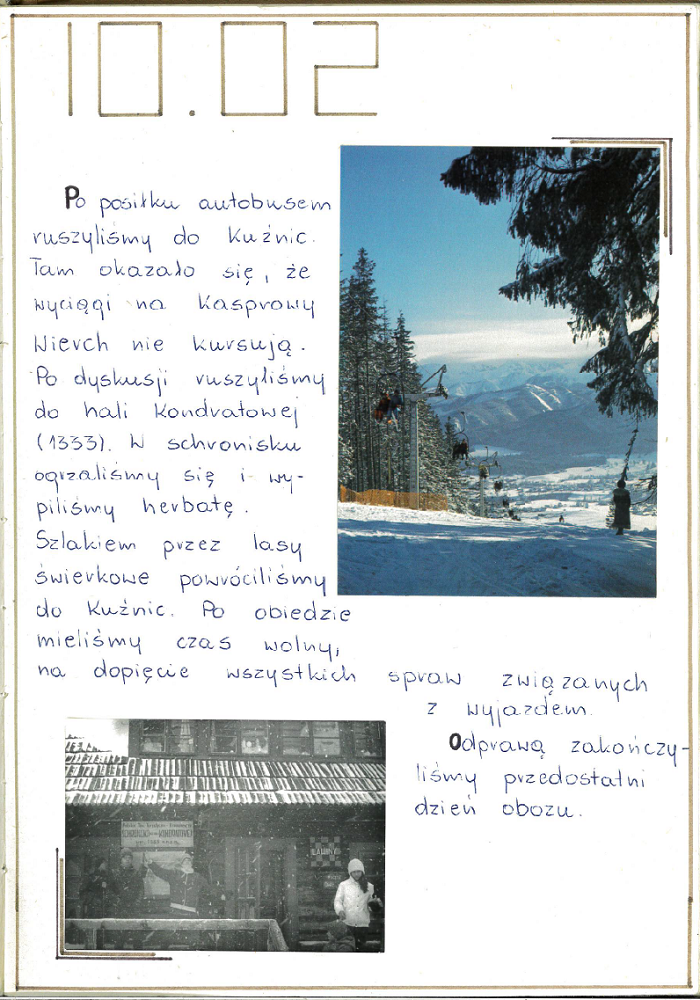 10.02
Po posiłku autobusem
ruszyliśmy do Kuźnic.
Tam okazało się, że
wyciągi na Kasprowy
Wierch nie kursują.
Po dyskusji ruszyliśmy
do hali Kondratowej
(1333). W schronisku
ogrzaliśmy się i wy-
piliśmy herbatę.
Szlakiem przez lasy
świerkowe powróciliśmy
do Kuźnic. Po obiedzie
mieliśmy czas wolny,
na dopięcie wszystkich spraw związanych
z wyjazdem.
Odprawą zakończy-
liśmy przedostatni
dzień obozu.
LAWINY